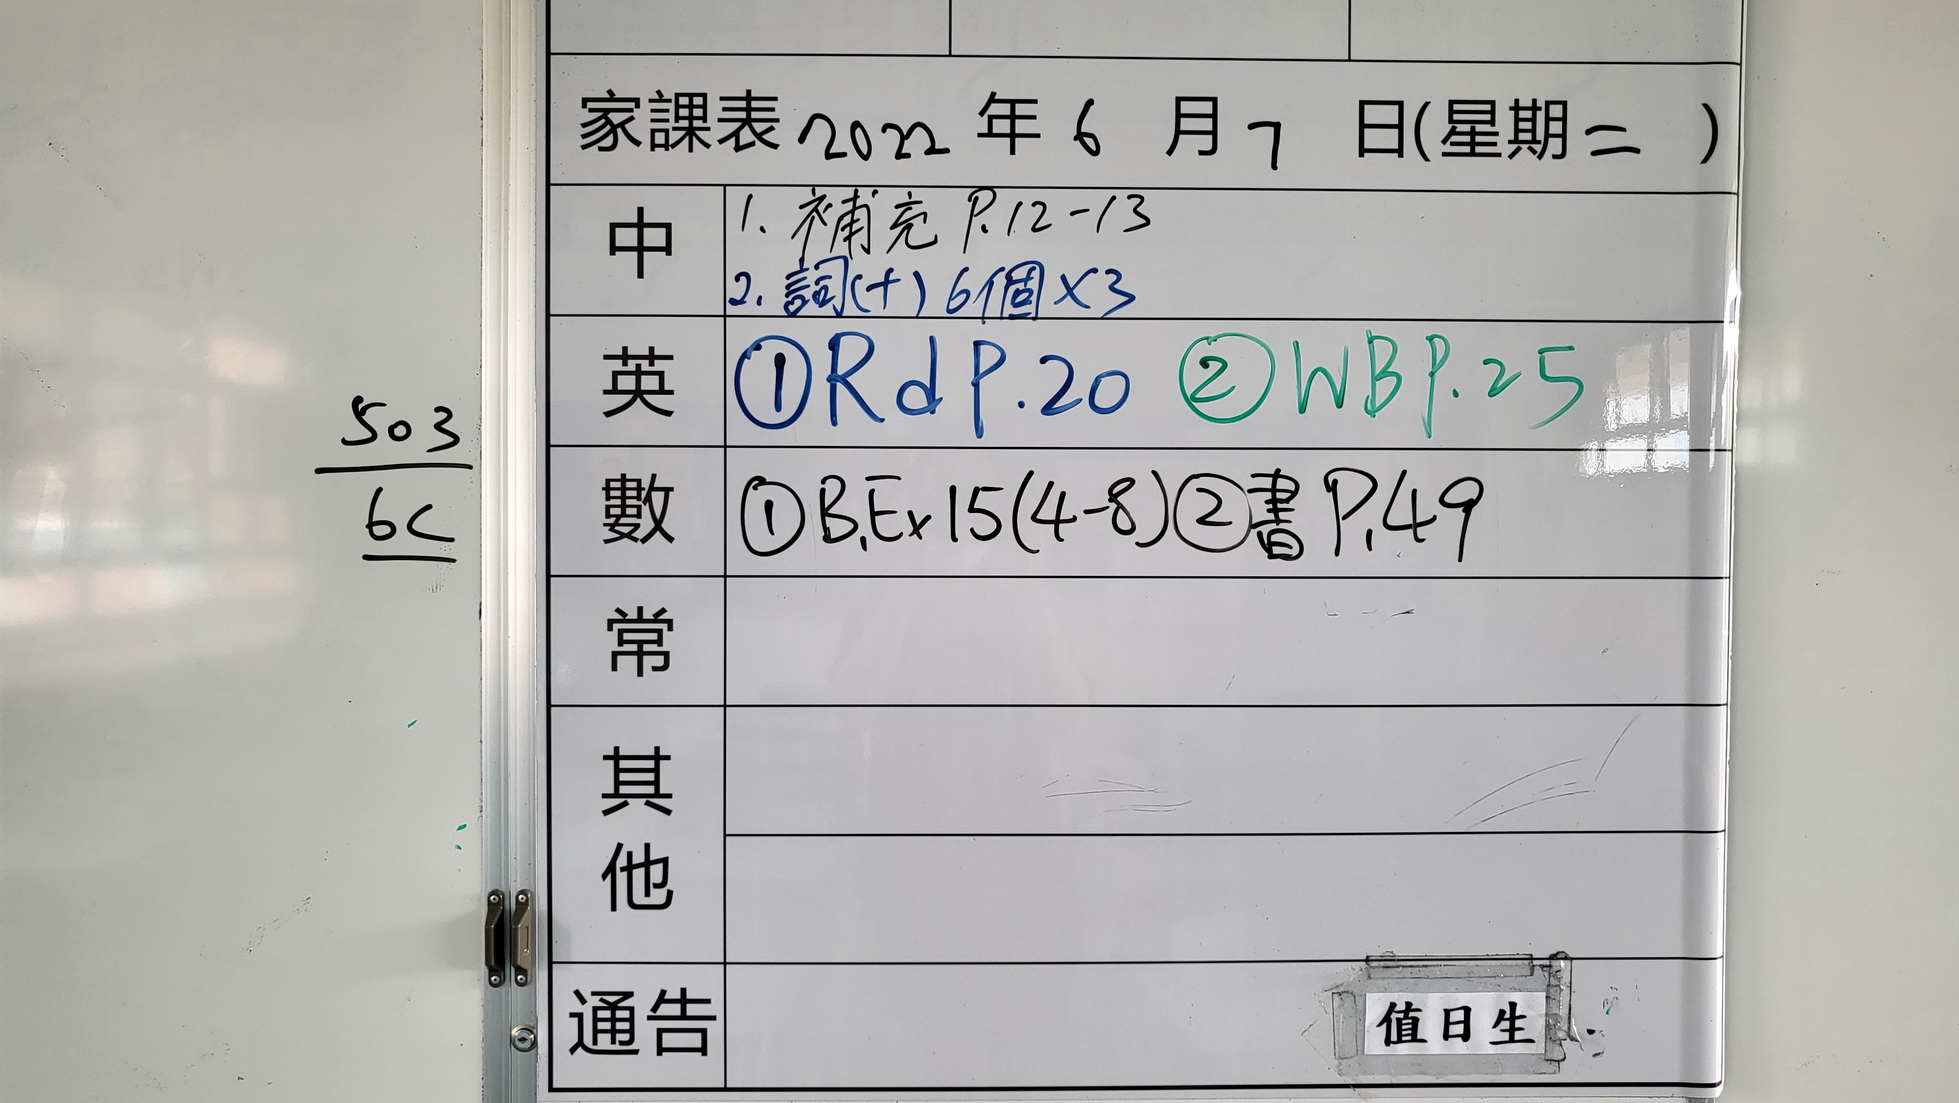 家課表 2022 年 6 月 7 日(星期二 )
中
1. 補充 P.12-13
2. 詞(十) 6個×3
英
①Rd P.20 ②WB P.25
數
①B.Ex 15(4-8)②書 P.49
常
其他
通告
值日生
503
6C